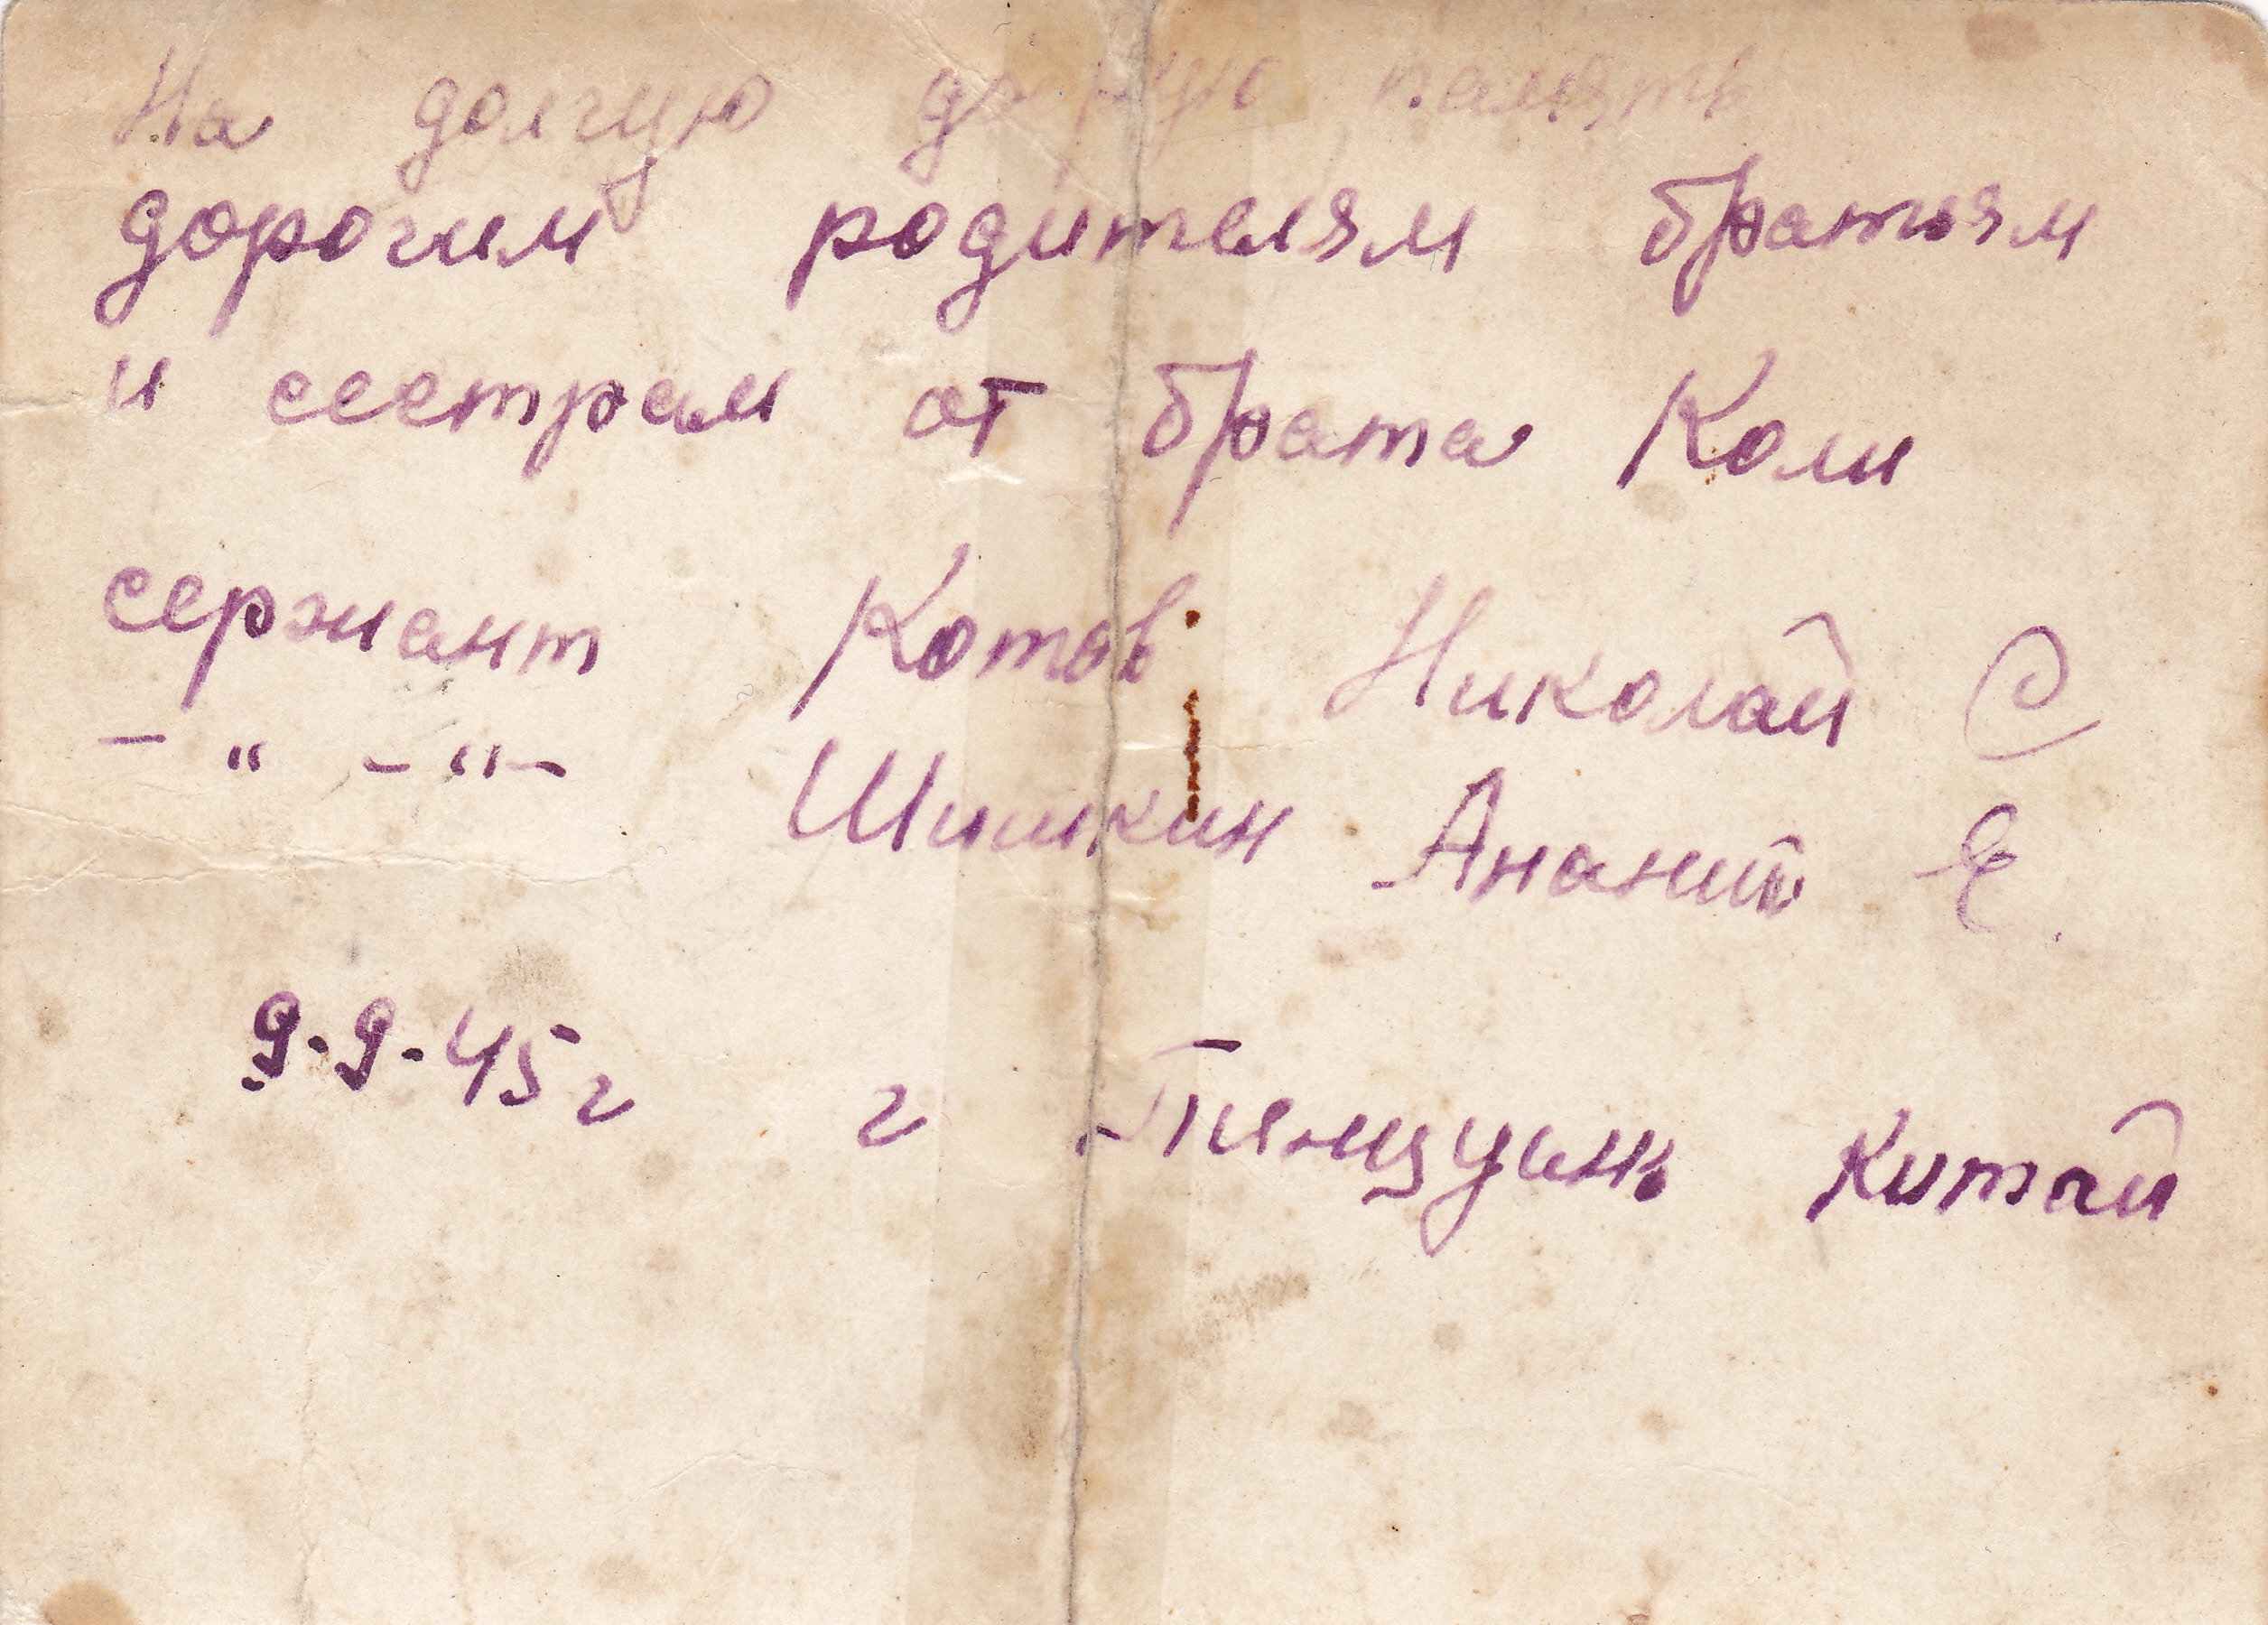 На долгую память
дорогим родителям братьям
и сестрам от брата Коли
сержант Котов Николай С
– " – " – Шишкин Ананий Е.
9.9.45 г г Пинцуань Китай